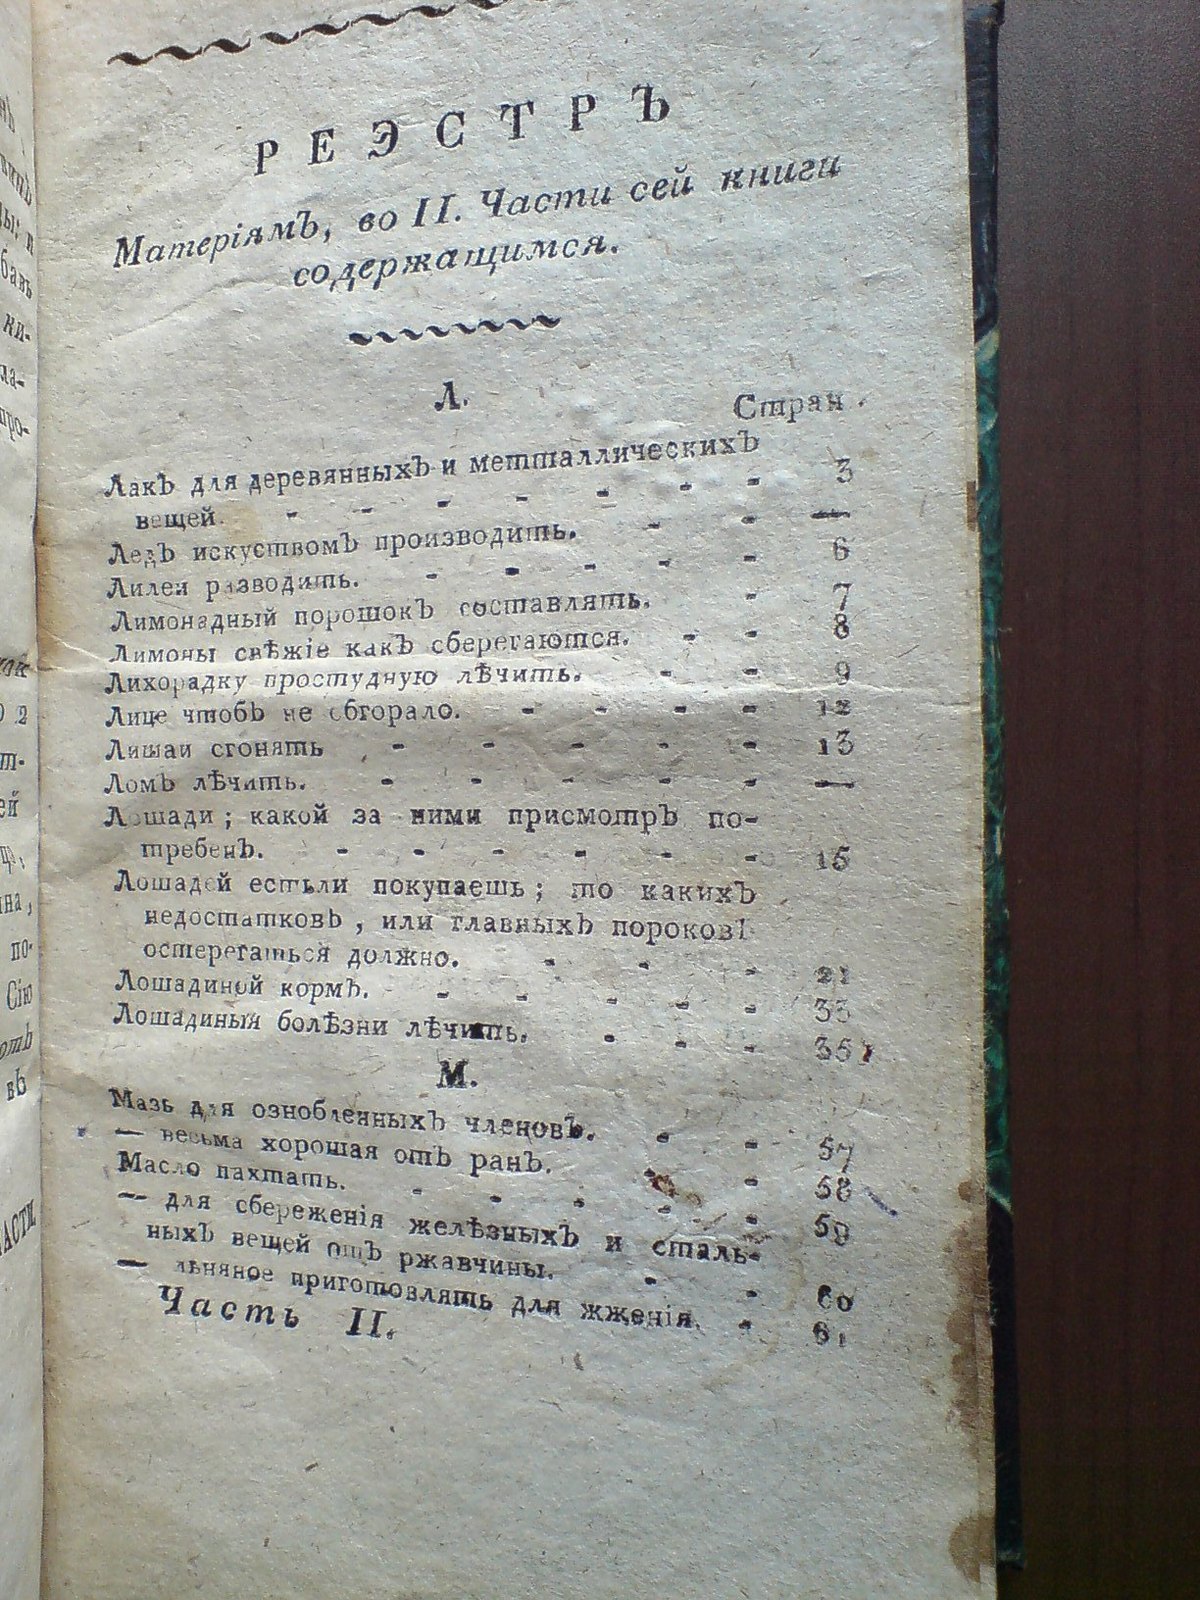 РЕЭСТРЪ
Матеріямъ, во II. Части сей книги
содержащимся.
Л.
Стран.
Лакъ для деревянныхъ и метталлическихъ
вещей. - - - - - - - 3
Ледъ искуствомъ производить. - - —
Лилеи разводить. - - - - - 6
Лимонадный порошокъ составлять. - 7
Лимоны свѣжіе какъ сберегаются. - - 8
Лихорадку простудную лѣчить. - - 9
Лице чтобъ не сгорало. - - - - 12
Лишаи сгонять - - - - - 13
Ломъ лѣчить. - - - - - —
Лошади; какой за ними присмотръ по-
требенъ. - - - - - - 15
Лошадей естьли покупаешь; то какихъ
недостатковъ, или главныхъ пороковъ
остерегаться должно. - - - 21
Лошадиной кормъ. - - - - - 33
Лошадиныя болѣзни лѣчить. - - - 35
М.
Мазь для ознобленныхъ членовъ. - - 57
— весьма хорошая отъ ранъ. - - 58
Масло пахтать. - - - - - 59
— для сбереженія желѣзныхъ и сталь-
ныхъ вещей отъ ржавчины. - - 60
— льняное приготовлять для жженія. - 61
Часть II.